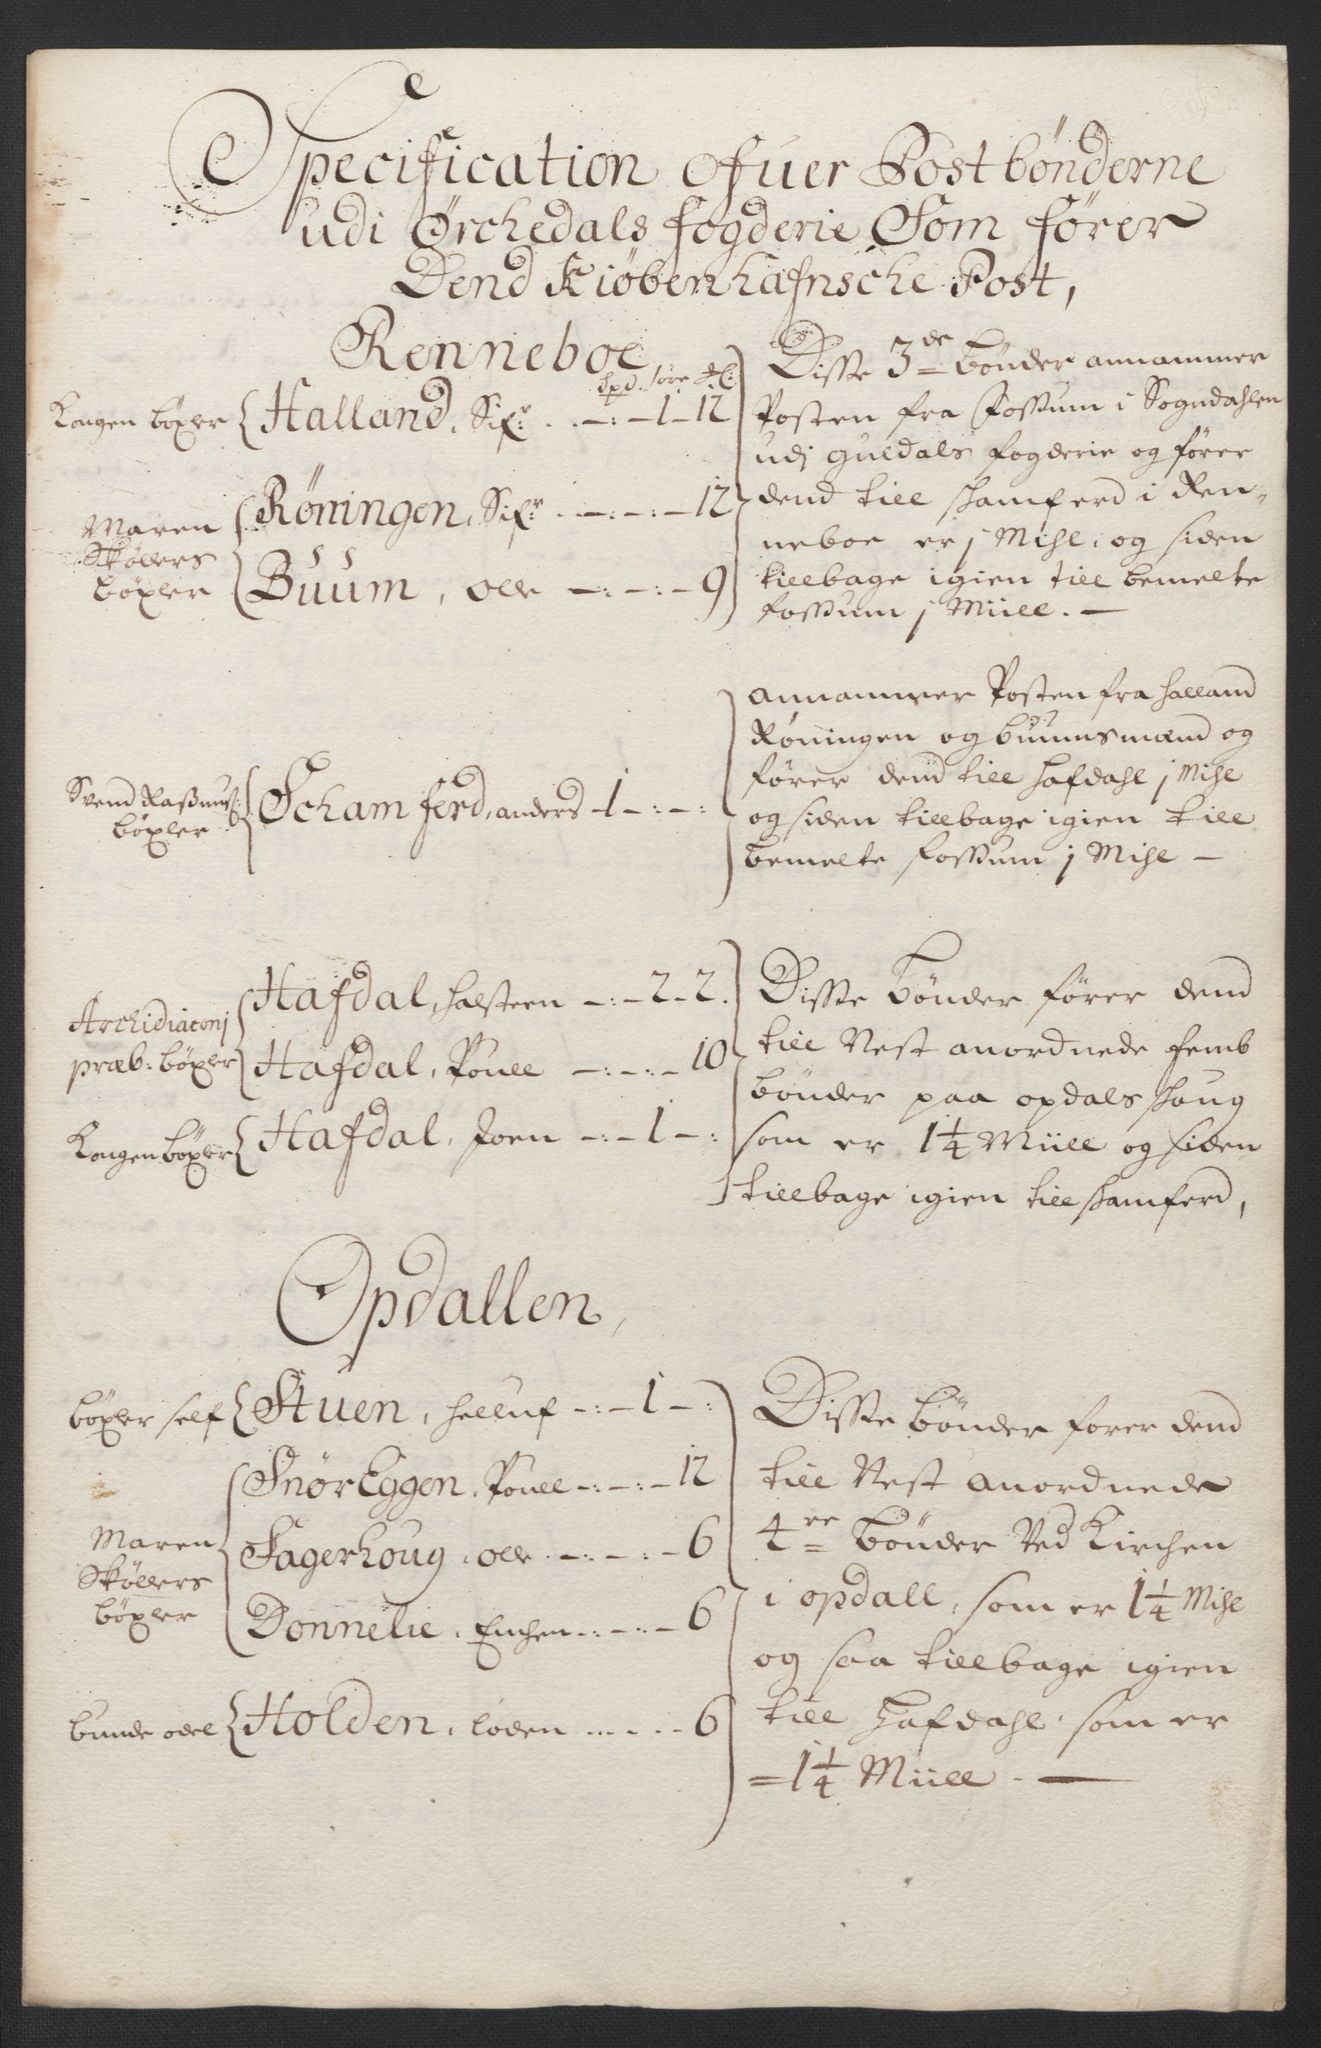 Specification ofuer Postbønderne
udi Ørchedals fogderie Som fører
Dend Kiøbenhafnsche Post,
Renneboe
Spd. øre
Kongen böxler { Halland, Sifr. - 1 - 12
Maren Skøllers böxler { Røningen, Sifr. - 12
Buum, Olle - 9
Disse 3de bønder annammer
Posten fra Fossum i Sogndahlen
udj guldals fogderie og fører
dend till schamferd i Ren-
neboe er j Mihl, og siden
tillbage igien till bemelte
fossum j Miill. -
Svend Rasmus: böxler { Schamferd, anders - 1 - : -
annammer Posten fra Halland
Røningen og buumsmænd og
fører dend till hafdahl j Mihl
og siden tillbage igien till
bemelte fossum j Mihl -
Archidiaconj præb: böxler { Hafdal, halsteen - 2 - 2
Hafdal, Pouel - 10
Kongen böxler { Hafdal, Joen - 1 - :
Disse bønder fører dend
till Nest anordnede femb
bønder paa opdals schoug
som er 1 1/4 Miill og siden
tillbage igien till schamferd,
Opdallen,
böxler self { Stuen, Helluf - 1 - :
Maren Skøllers böxler { SnørEggen, Pouel - 12
Fagerhoug, Olle - 6
Donnelie, - 6
bunde odel { Holden, loden - 6
Disse bønder forer dend
till Nest anordnede
4re bønder Ved Kirchen
i opdall, som er 1 1/4 Mihl
og saa tillbage igien
till Hafdahl, som er
= 1 1/4 Miill -